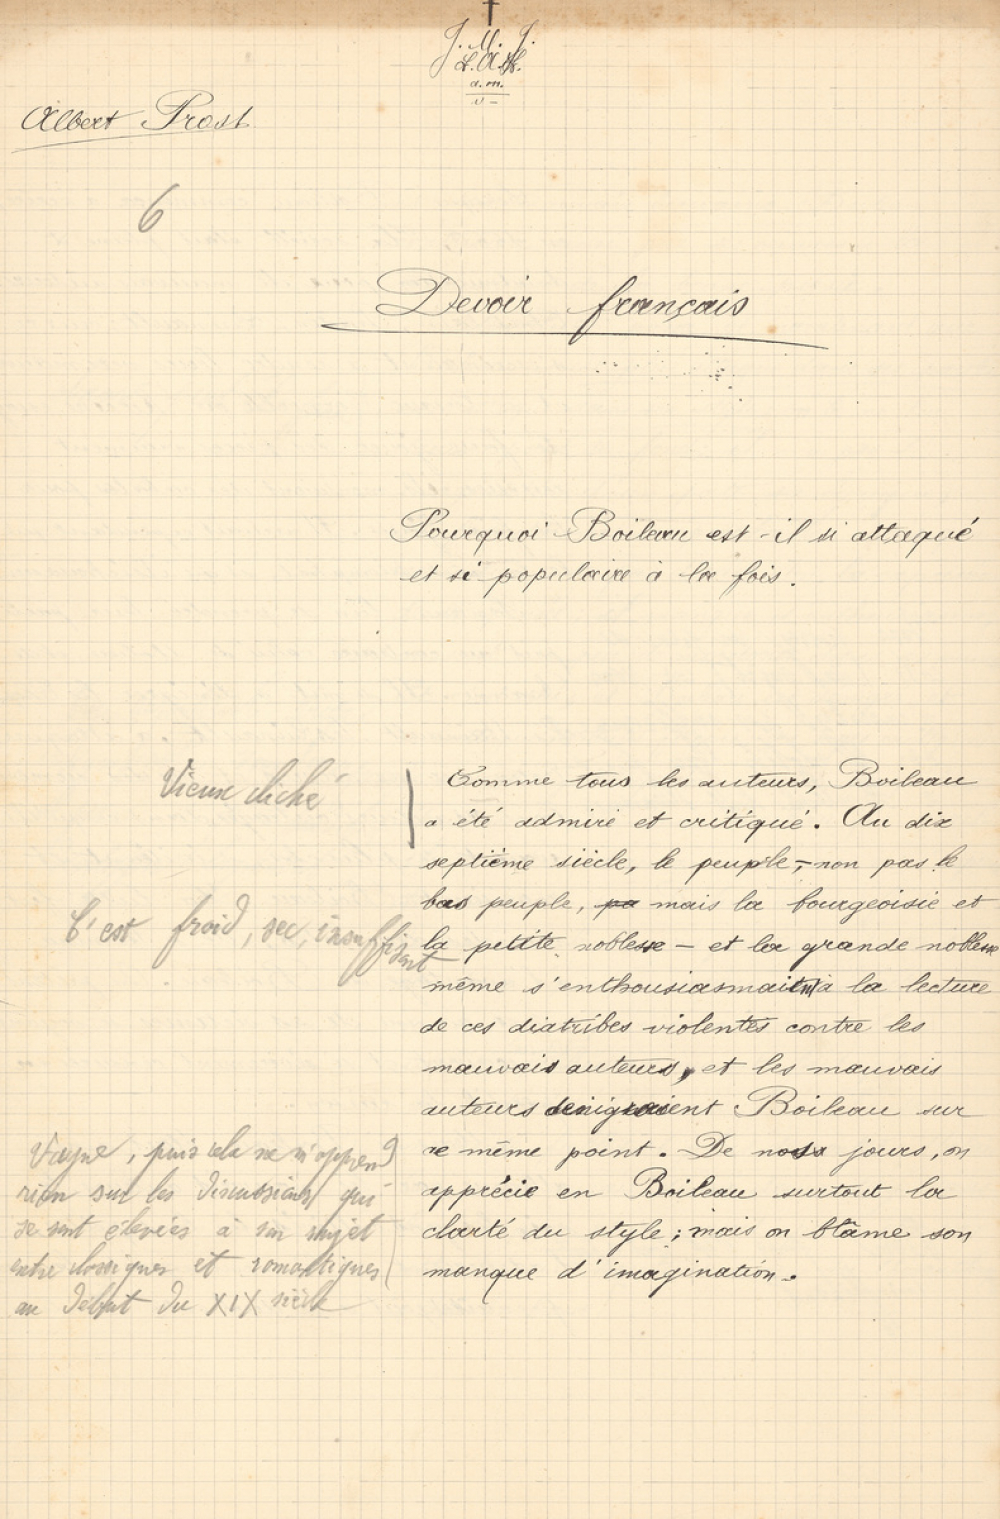 J. M. J.
a. m.
Albert Prost
6
Devoir français
Pourquoi Boileau est-il si attaqué
et si populaire à la fois.
Vieux cliché
Comme tous les auteurs, Boileau
a été admiré et critiqué. Au dix
septième siècle, le peuple, – non pas le
bas peuple, pa mais la bourgeoisie et
C'est froid, sec, insuffisant
la petite noblesse – et la grande noblesse
même s'enthousiasmaient à la lecture
de ces diatribes violentes contre les
mauvais auteurs, et les mauvais
auteurs dénigraient Boileau sur
ce même point. De nos jours, on
apprécie en Boileau surtout la
clarté du style ; mais on blâme son
manque d'imagination.
Vague, puis cela ne m'apprend
rien sur les discussions qui
se sont élevées à son sujet
entre classiques et romantiques
au début du XIX siècle